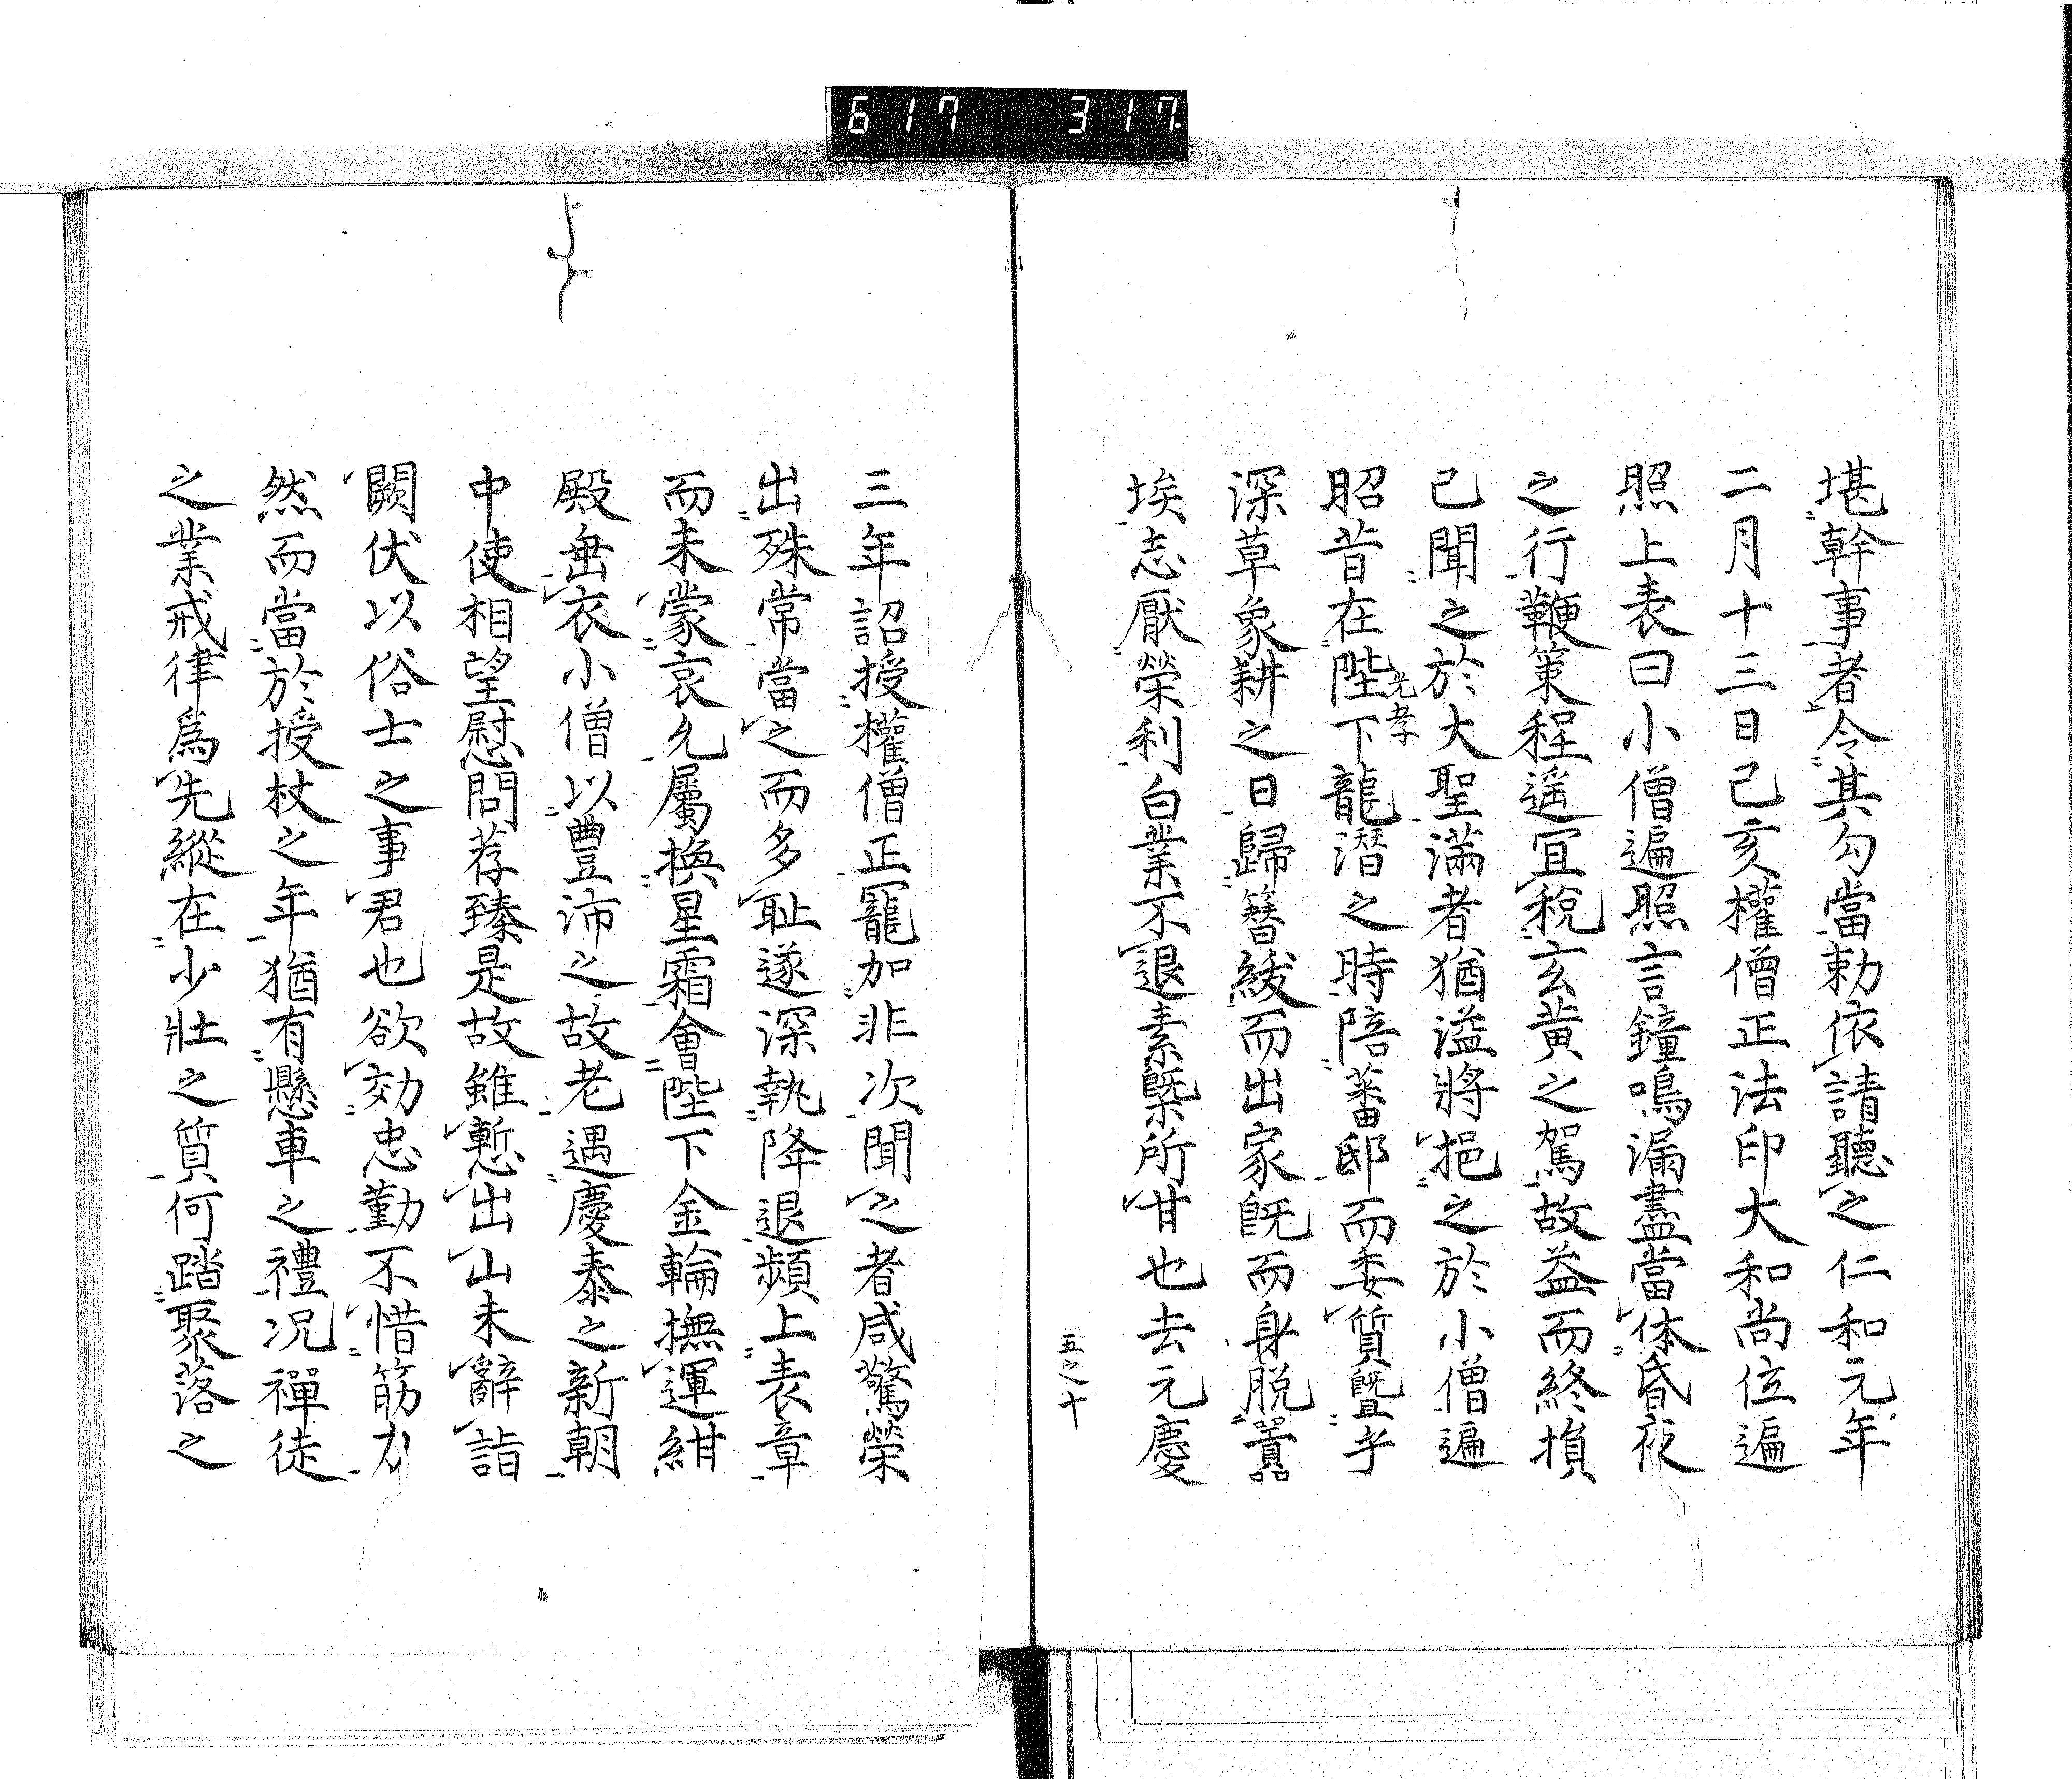 617 317.
堪幹事者令其勾當勅依請聽之仁和元年
二月十三日己亥權僧正法印大和尚位遍
照上表曰小僧遍照言鐘鳴漏盡當休昏夜
之行鞭策程遥宜税玄黄之駕故益而終損
已聞之於大聖滿者猶溢將挹之於小僧遍
光孝
昭昔在陛下龍潜之時陪蕃邸而委質曁乎
深草象耕之日歸簪紱而出家既而身脱囂
埃志厭榮利白業不退素槩所甘也去元慶
五之十
三年詔授權僧正寵加非次聞之者咸驚榮
出殊常當之而多耻遂深執降退頻上表章
而未蒙哀允屬換星霜會陛下金輪撫運紺
殿垂衣小僧以豐沛之故老遇慶泰之新朝
中使相望慰問荐臻是故雖慙出山未辭詣
闕伏以俗士之事君也欲効忠勤不惜筋力
然而當於授杖之年猶有懸車之禮况禪徒
之業戒律爲先縱在少壯之質何踏聚落之